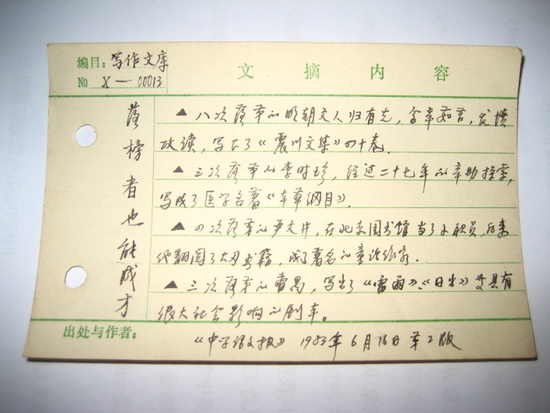 编目：写作文库
文摘内容
№ X—00013
落榜者也能成才
▲八次落第的明朝文人归有光，含辛茹苦，发愤
攻读，写下了《震川文集》四十卷。
▲三次落第的李时珍，经过二十七年的辛勤探索，
写成了医学名著《本草纲目》。
▲四次落第的
，在北京图书馆当了小职员，后来
他翻阅了大
书籍，成了著名的童话作家。
▲三次落第的曹禺，写出了《雷雨》、《日出》等具有
很大社会影响的剧本。
出处与作者：
《中学语文报》1983年6月16日第2版